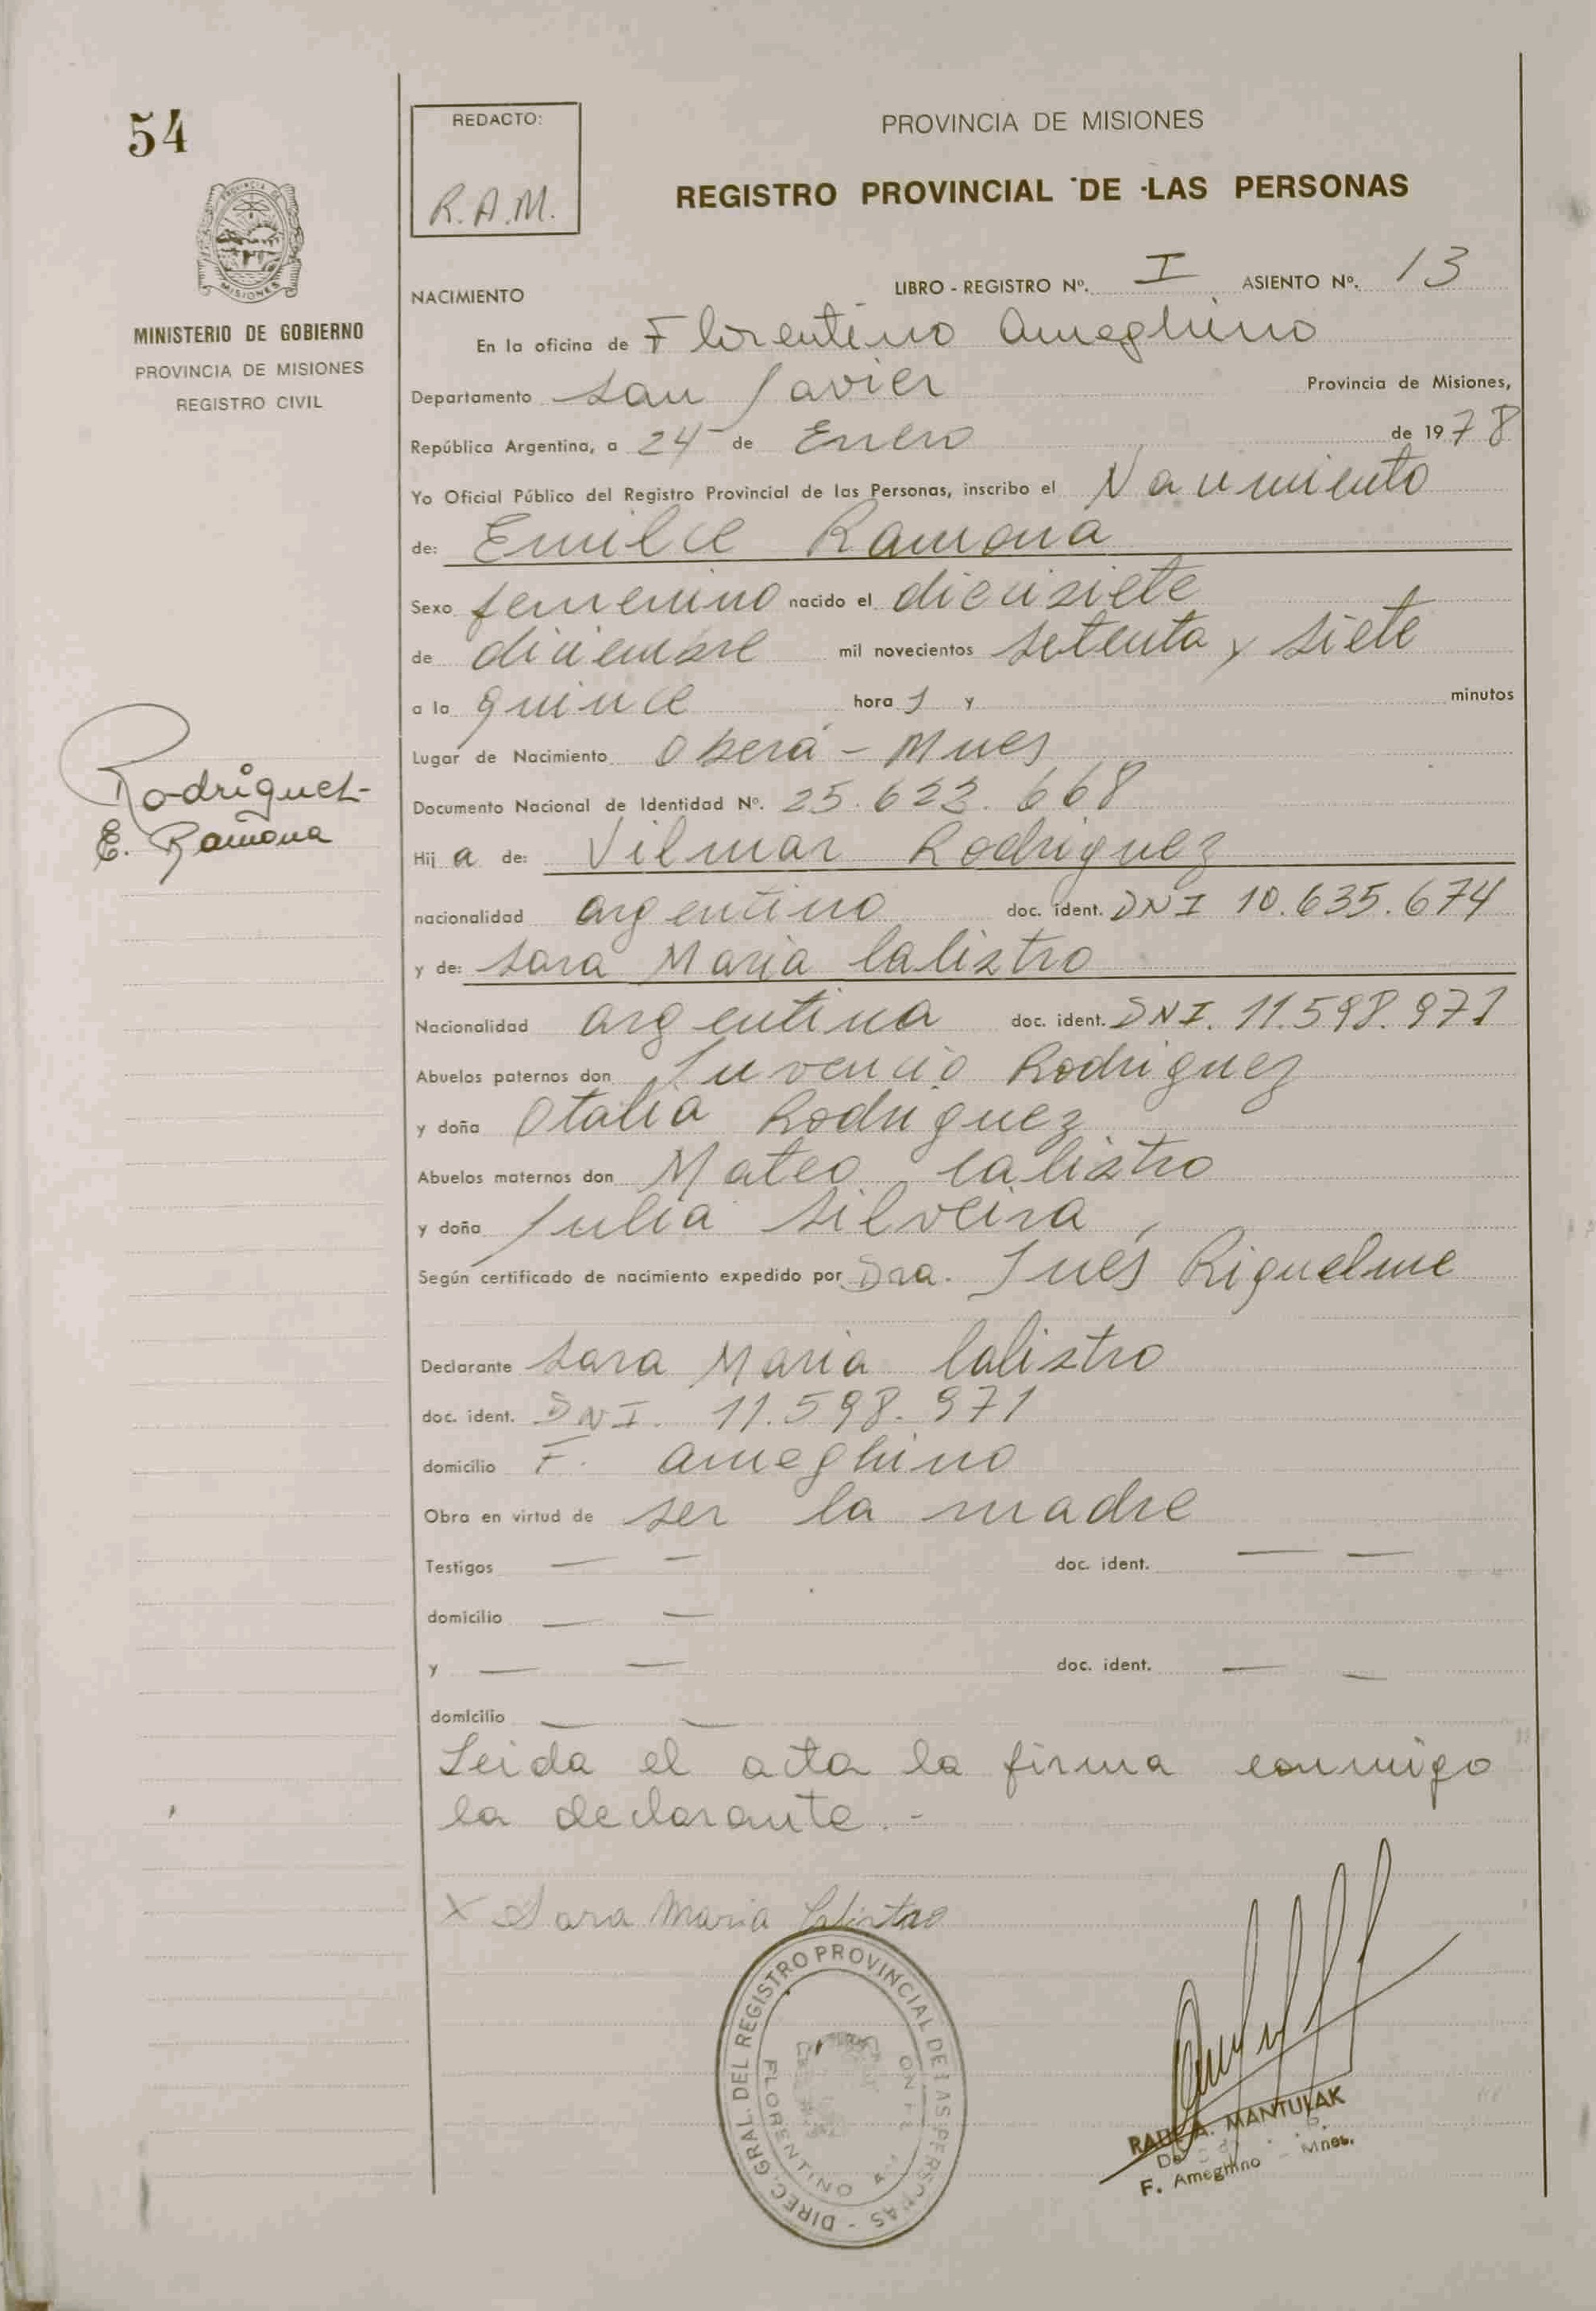 54
MINISTERIO DE GOBIERNO
PROVINCIA DE MISIONES
REGISTRO CIVIL
Rodríguez-
E. Ramona
REDACTO:
R.A.M.
PROVINCIA DE MISIONES
REGISTRO PROVINCIAL DE LAS PERSONAS
NACIMIENTO LIBRO - REGISTRO Nº. I ASIENTO Nº. 13
En la oficina de Florentino Ameghino
Departamento San Javier Provincia de Misiones,
República Argentina, a 24 de Enero de 1978
Yo Oficial Público del Registro Provincial de las Personas, inscribo el Nacimiento
de: Emilce Ramona
Sexo femenino nacido el diecisiete
de diciembre mil novecientos setenta y siete
a la quince hora s y minutos
Lugar de Nacimiento Oberá - Mnes
Documento Nacional de Identidad Nº. 25.622.668
Hij a de: Vilmar Rodriguez
nacionalidad argentino doc. ident. DNI 10.635.674
y de: Sara Maria Calistro
Nacionalidad argentina doc. ident. DNI. 11.598.971
Abuelos paternos don Juvencio Rodriguez
y doña Otalia Rodriguez
Abuelos maternos don Mateo Calistro
y doña Julia Silveira
Según certificado de nacimiento expedido por Dra. Inés Riquelme
Declarante Sara Maria Calistro
doc. ident. DNI. 11.598.971
domicilio F. Ameghino
Obra en virtud de ser la madre
Testigos — — doc. ident. — —
domicilio — —
y — — doc. ident. — —
domicilio — —
Leida el acta la firma conmigo
la declarante.-
X Sara Maria Calistro
DIREC. GRAL. DEL REGISTRO PROVINCIAL DE LAS PERSONAS -
FLORENTINO
RAUL A. MANTULAK
F. Ameghino - Mnes.